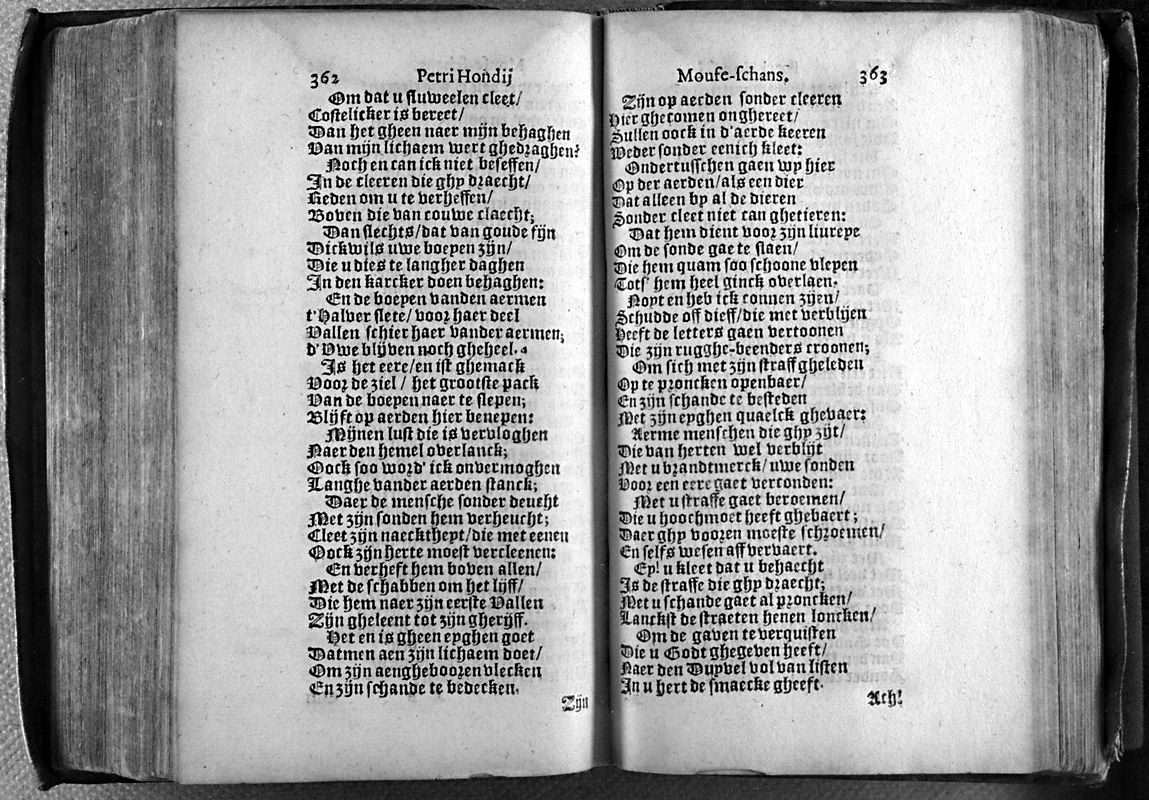 362 Petri Hondij
Om dat u fluweelen cleet/
Costelicker is bereet/
Dan het gheen naer mijn behaghen
Van mijn lichaem wert ghedraghen?
Noch en can ick niet beseffen/
In de cleeren die ghy draecht/
Reden om u te verheffen/
Boven die van rouwe claecht;
Dan slechts/dat van goude fijn
Dickwils uwe boeyen zijn/
Die u dies te langher daghen
In den karcker doen behaghen:
En de boeyen vanden aermen
t'Halver slete/voor haer deel
Vallen schier haer vander aermen;
d'Uwe blijven noch gheheel.
Is het eere/en ist ghemack
Voor de ziel / het grootste pack
Van de boeyen naer te slepen;
Blijft op aerden hier benepen:
Mijnen lust die is vervloghen
Naer den hemel overlanck;
Oock soo word' ick onvermoghen
Langhe vander aerden stanck;
Daer de mensche sonder deucht
Met zijn sonden hem verheucht;
Cleet zijn naecktheyt/die met eenen
Oock zijn herte moest vercleenen:
En verheft hem boven allen/
Met de schabben om het lijff/
Die hem naer zijn eerste Vallen
Zijn gheleent tot zijn gherijff.
Het en is gheen eyghen goet
Datmen aen zijn lichaem doet/
Om zijn aengheboozen vlecken
En zijn schande te bedecken.
Zijn
Moufe-schans. 363
Zijn op aerden sonder cleeren
Hier ghecomen onghereet/
Sullen oock in d'aerde keeren
Weder sonder eenich kleet:
Ondertusschen gaen wy hier
Op der aerden/als een dier
Dat alleen by al de dieren
Sonder cleet niet can ghetieren:
Dat hem dient voor zijn liureye
Om de sonde gae te slaen/
Die hem quam soo schoone vleyen
Tots' hem heel ginck overlaen.
Noyt en heb ick connen zijen/
Schudde off dieff/die met verblijen
Heeft de letters gaen vertoonen
Die zijn rugghe-beenders croonen;
Om sich met zijn straff gheleden
Op te proncken openbaer/
En zijn schande te besteden
Met zijn eyghen quaelck ghevaer:
Aerme menschen die ghy zijt/
Die van herten wel verblijt
Met u brandtmerck/uwe sonden
Voor een eere gaet verconden:
Met u straffe gaet beroemen/
Die u hoochmoet heeft ghebaert;
Daer ghy vooren moeste schroemen/
En selfs wesen aff vervaert.
Ey! u kleet dat u behaecht
Is de straffe die ghy draecht;
Met u schande gaet al proncken/
Lanckst de straeten henen loncken/
Om de gaven te verquisten
Die u Godt ghegeven heeft/
Naer den Duyvel vol van listen
In u hert de smaecke gheeft.
Ach!